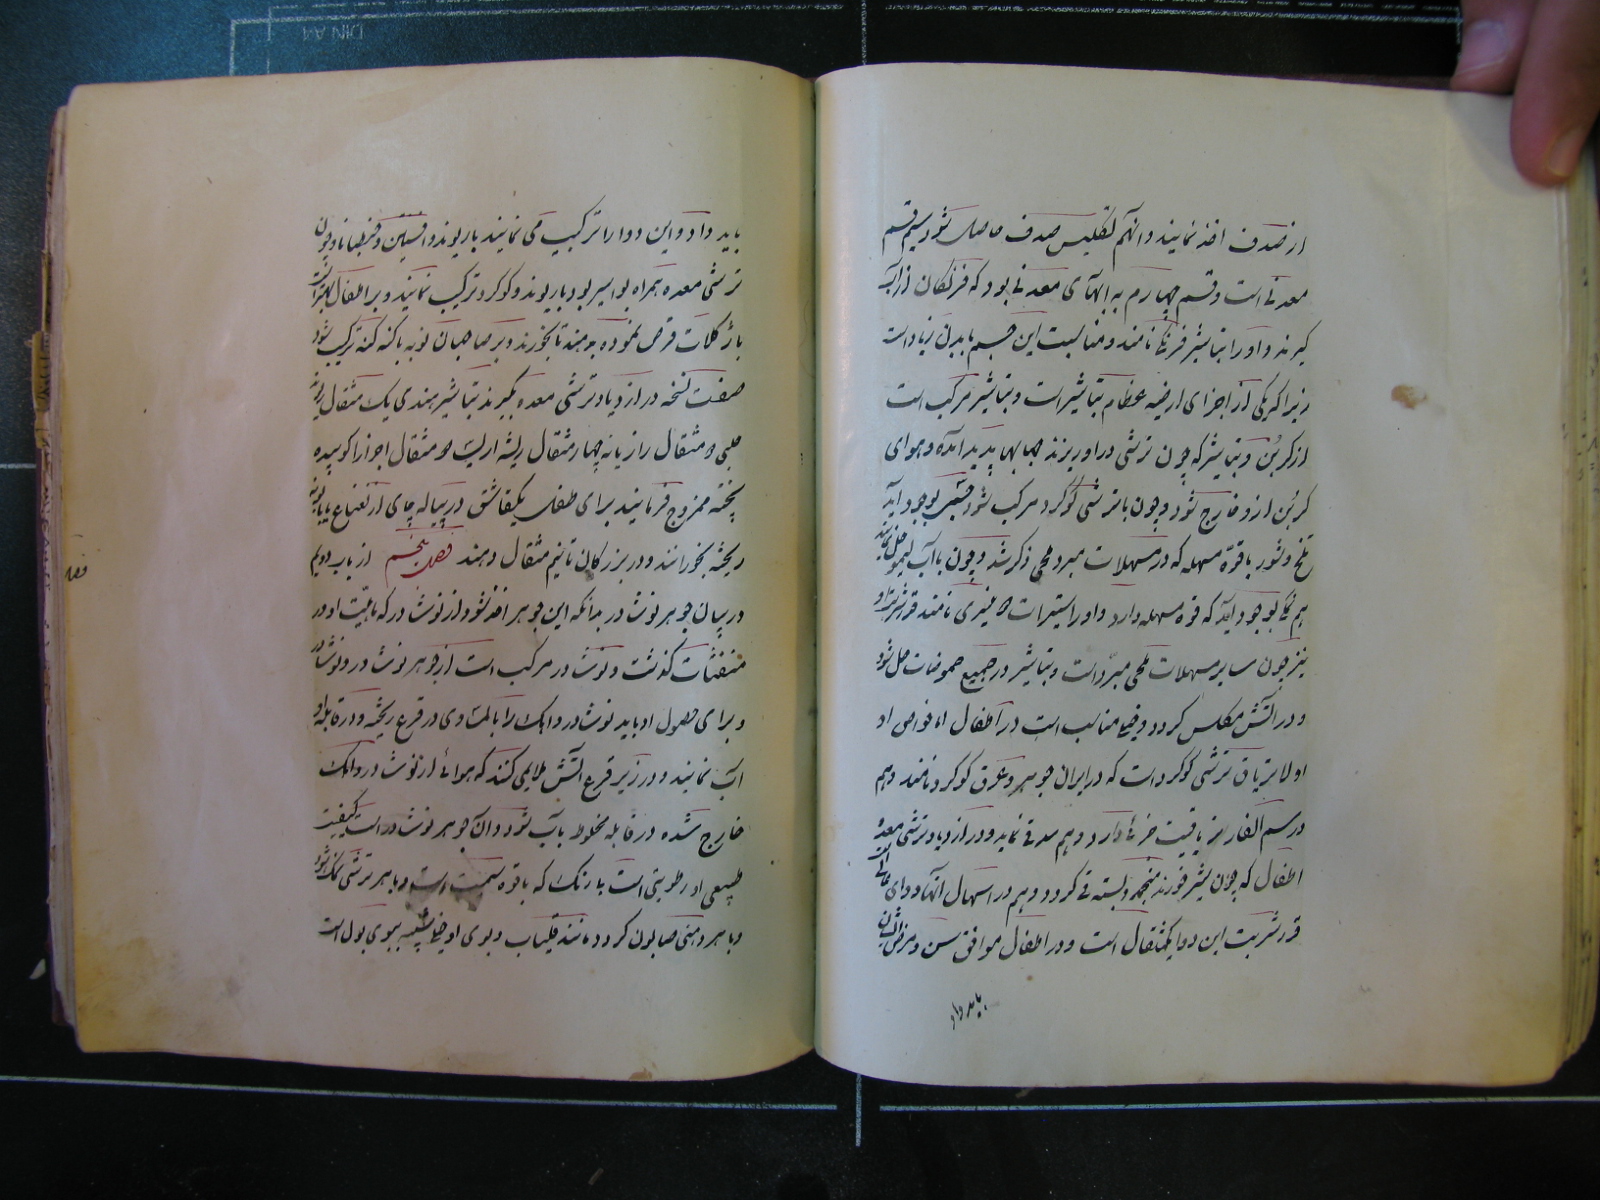 از صدف اخذ نمایند و آنهم بتکلیس صدف حاصل شود سیم قسم
معدنی است و قسم چهارم به آبهای معدنی بود که فرنکان از آب
کیرند و او را تباشیر فرنکی نامند و مناسبت این جسم با بدن زیاد است
زیرا که یکی از اجزای ارضیه عظام تباشیر است و تباشیر مرکب است
از کربن و تباشیر که چون ترشی در او ریزند حبابها پدید آمده و هوای
کربن از و خارج شود و چون با ترشی کوکرد مرکب شود بوجود آید
تلخ و شور با قوه مسهله که در مسهلات مبرد ملحی ذکر شد و چون با آب لیمو حل نمایند
هم نمکی بوجود آید که قوه مسهله دارد و او را سیترات نامند قدر شربت او
نیز چون سایر مسهلات ملحی مبرد است و تباشیر در جمیع حموضات حل شود
و در آتش مکلس کردد و خیلی مناسب است در اطفال اما خواص او
اولا تریاق ترشی کوکرد است که در ایران جوهر و عرق کوکرد نامند و هم
در سم الفار نیز باقیت دارد و هم سد قی نماید و در ازدیاد ترشی معده
اطفال که چون شیر خورند منجمد و بسته قی کردد و هم در اسهال آنها و دوای
قدر شربت این دوا یکمثقال است و در اطفال موافق سن و مرض ایشان
باید داد
باید داد و این دوا را ترکیب می نمایند با ریوند و افسنتین و
ترشی معده همراه بواسیر بود با ریوند و کوکرد ترکیب نمایند و برای اطفال
با شکلات قرص نموده بدهند تا بخورند و بر صاحبان نوبه با کنه کنه ترکیب شود
صفت نسخه در ازدیاد ترشی معده بکیرند تباشیر هندی یک مثقال
حلبی دو مثقال رازیانه چهار مثقال ریشه دو مثقال اجزا را کوبیده
پخته ممزوج فرمایند برای طفل یکقاشق در پیاله چای از نعناع یا بابونه
ریخته بخورانند و در بزرکان تا نیم مثقال دهند فصل پنجم از باب دویم
در بیان جوهر نوشادر بدانکه این جوهر اخذ شود از نوشادر که ماهیت او در
منفثات کذشت و نوشادر مرکب است از جوهر نوشادر و نوشادر
و برای حصول او باید نوشادر و آهک را بالمساوی در قرع ریخته و در قابله او
آب نمایند و در زیر قرع آتش ملایمی کنند که هوائی از نوشادر و آهک
خارج شده در قابله مخلوط بآب شود و آن جوهر نوشادر است کیفیت
طبیعی او رطوبتی است بیرنک که با قوه سمیت است و با هر ترشی نمک شود
و با هر دهنی صابون کردد مانند قلیاب و بوی او خیلی شبیه ببوی بول است